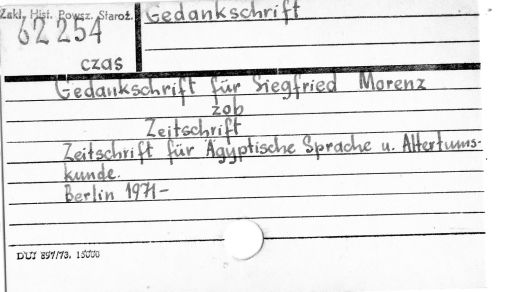 Zakl. Hist. Powsz. Staroż.
Gedankschrift
62 254
czas
Gedankschrift für Siegfried Morenz
zob
Zeitschrift
Zeitschrift für Ägyptische Sprache u. Altertums-
kunde.
Berlin 1971-
DUJ 897/73. 15000